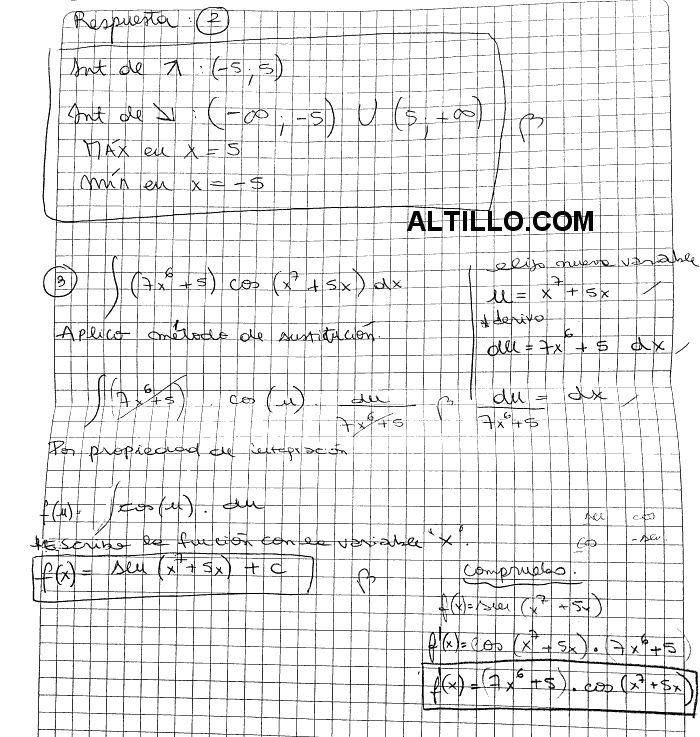 Respuesta : 2
Int de ↗ : (-5; 5)
Int de ↘ : (-∞; -5) ∪ (5; +∞)
MÁX en x = 5
mín en x = -5
ALTILLO.COM
3) ∫ (7x⁶ + 5) cos (x⁷ + 5x) dx
Aplico método de sustitución.
elijo nueva variable
u = x⁷ + 5x
* derivo
du = 7x⁶ + 5 dx
du/(7x⁶+5) = dx
∫ (7x⁶+5) . cos (u) . du/(7x⁶+5)
Por propiedad de integración
f(u) = ∫ cos(u) . du
sen cos
cos -sen
*Escribo la función con la variable "x".
f(x) = sen (x⁷ + 5x) + C
Compruebo.
f(x) = sen (x⁷ + 5x)
f'(x) = cos (x⁷ + 5x) . (7x⁶ + 5)
f'(x) = (7x⁶ + 5) . cos (x⁷ + 5x)